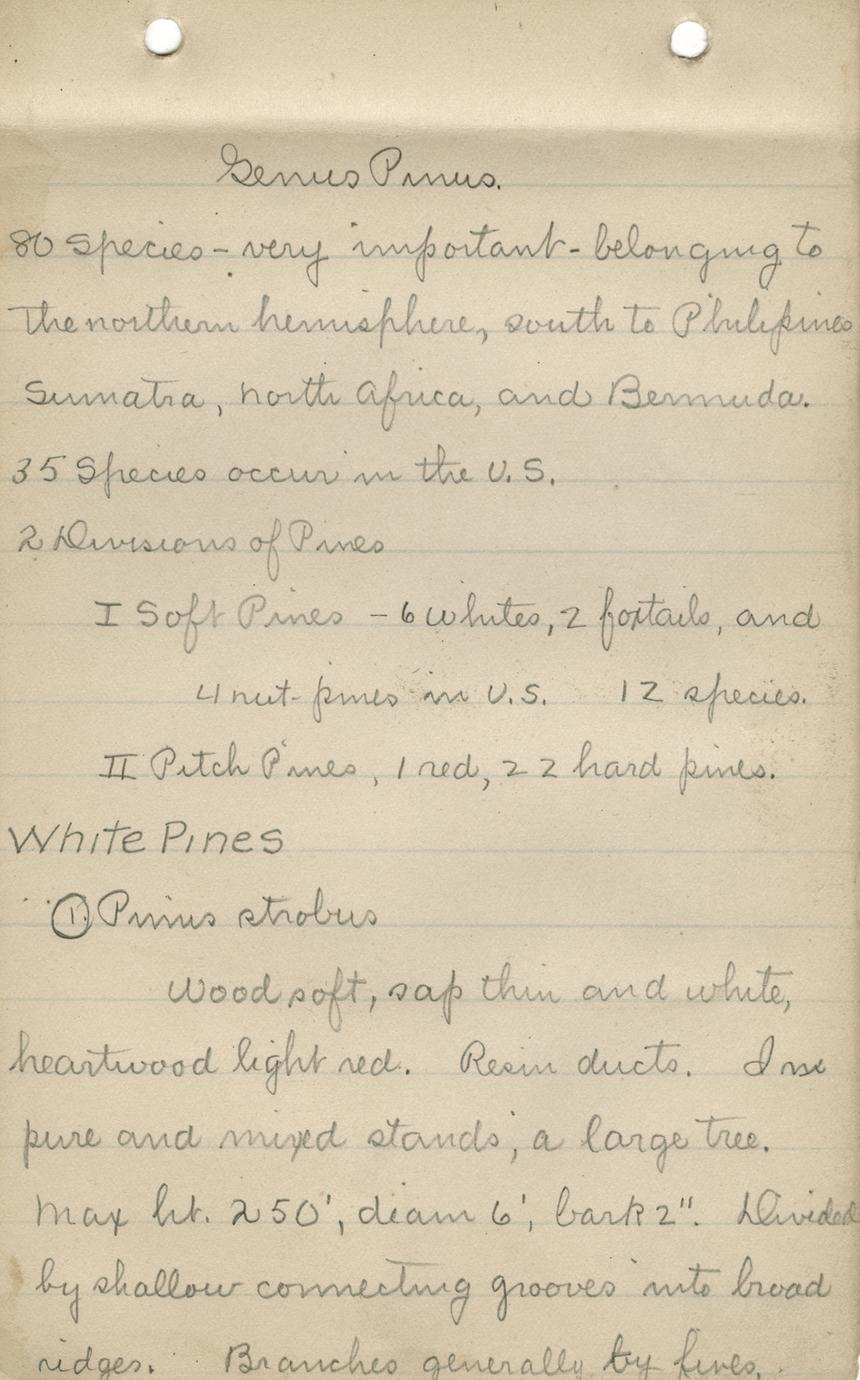 Genus Pinus.
80 Species - very important - belonging to
the northern hemisphere, south to Philipines
Sumatra, north Africa, and Bermuda.
35 Species occur in the U.S.
2 Divisions of Pines
I Soft Pines - 6 whites, 2 foxtails, and
4 nut pines in U.S. 12 species.
II Pitch Pines, 1 red, 22 hard pines.
White Pines
① Pinus strobus
Wood soft, sap thin and white,
heartwood light red. Resin ducts. In
pure and mixed stands, a large tree.
Max ht. 250', diam 6', bark 2". Divided
by shallow connecting grooves into broad
ridges. Branches generally by fives,